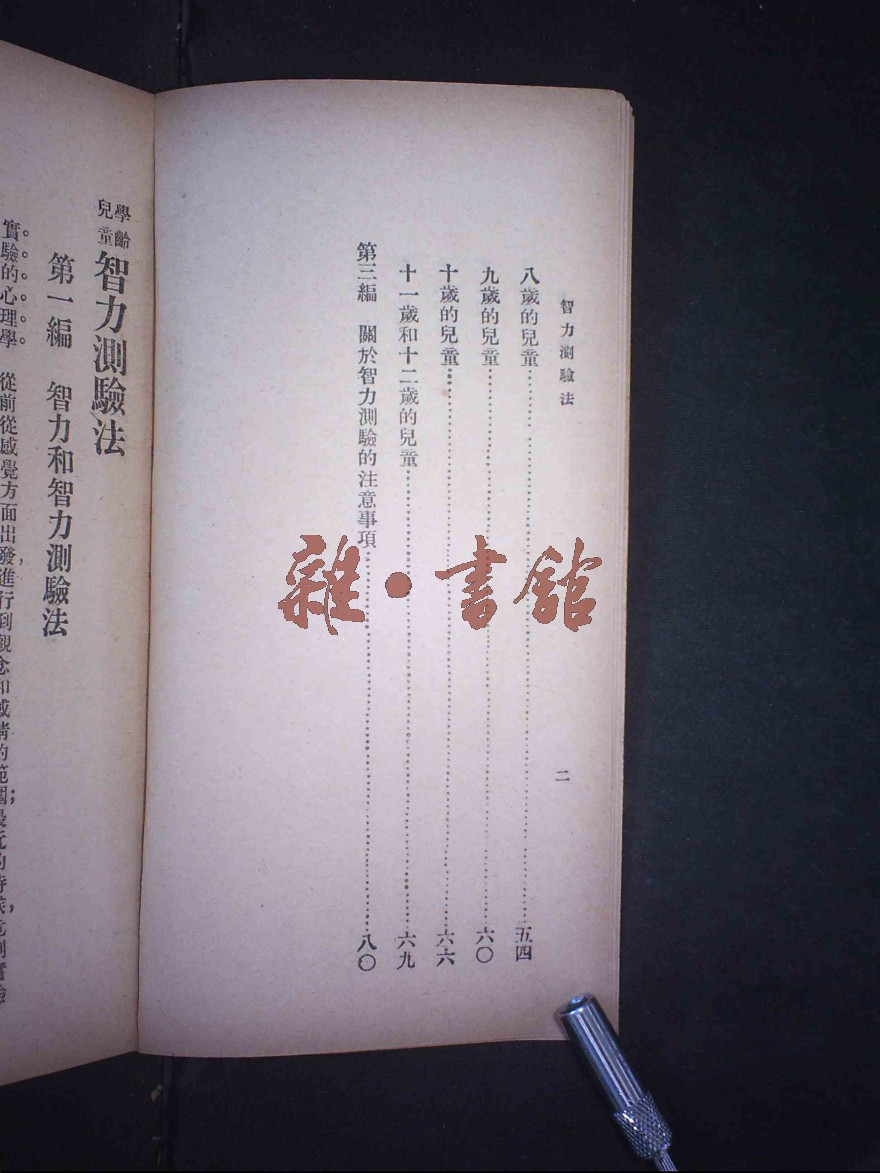 智力測驗法
二
八歲的兒童……五四
九歲的兒童……六〇
十歲的兒童……六六
十一歲和十二歲的兒童……六九
第三編　關於智力測驗的注意事項……八〇
雜·書館
學齡兒童智力測驗法
第一編　智力和智力測驗法
實驗的心理學　從前從感覺方面出發，進行到觀念和感情的範圍；最近的時候，